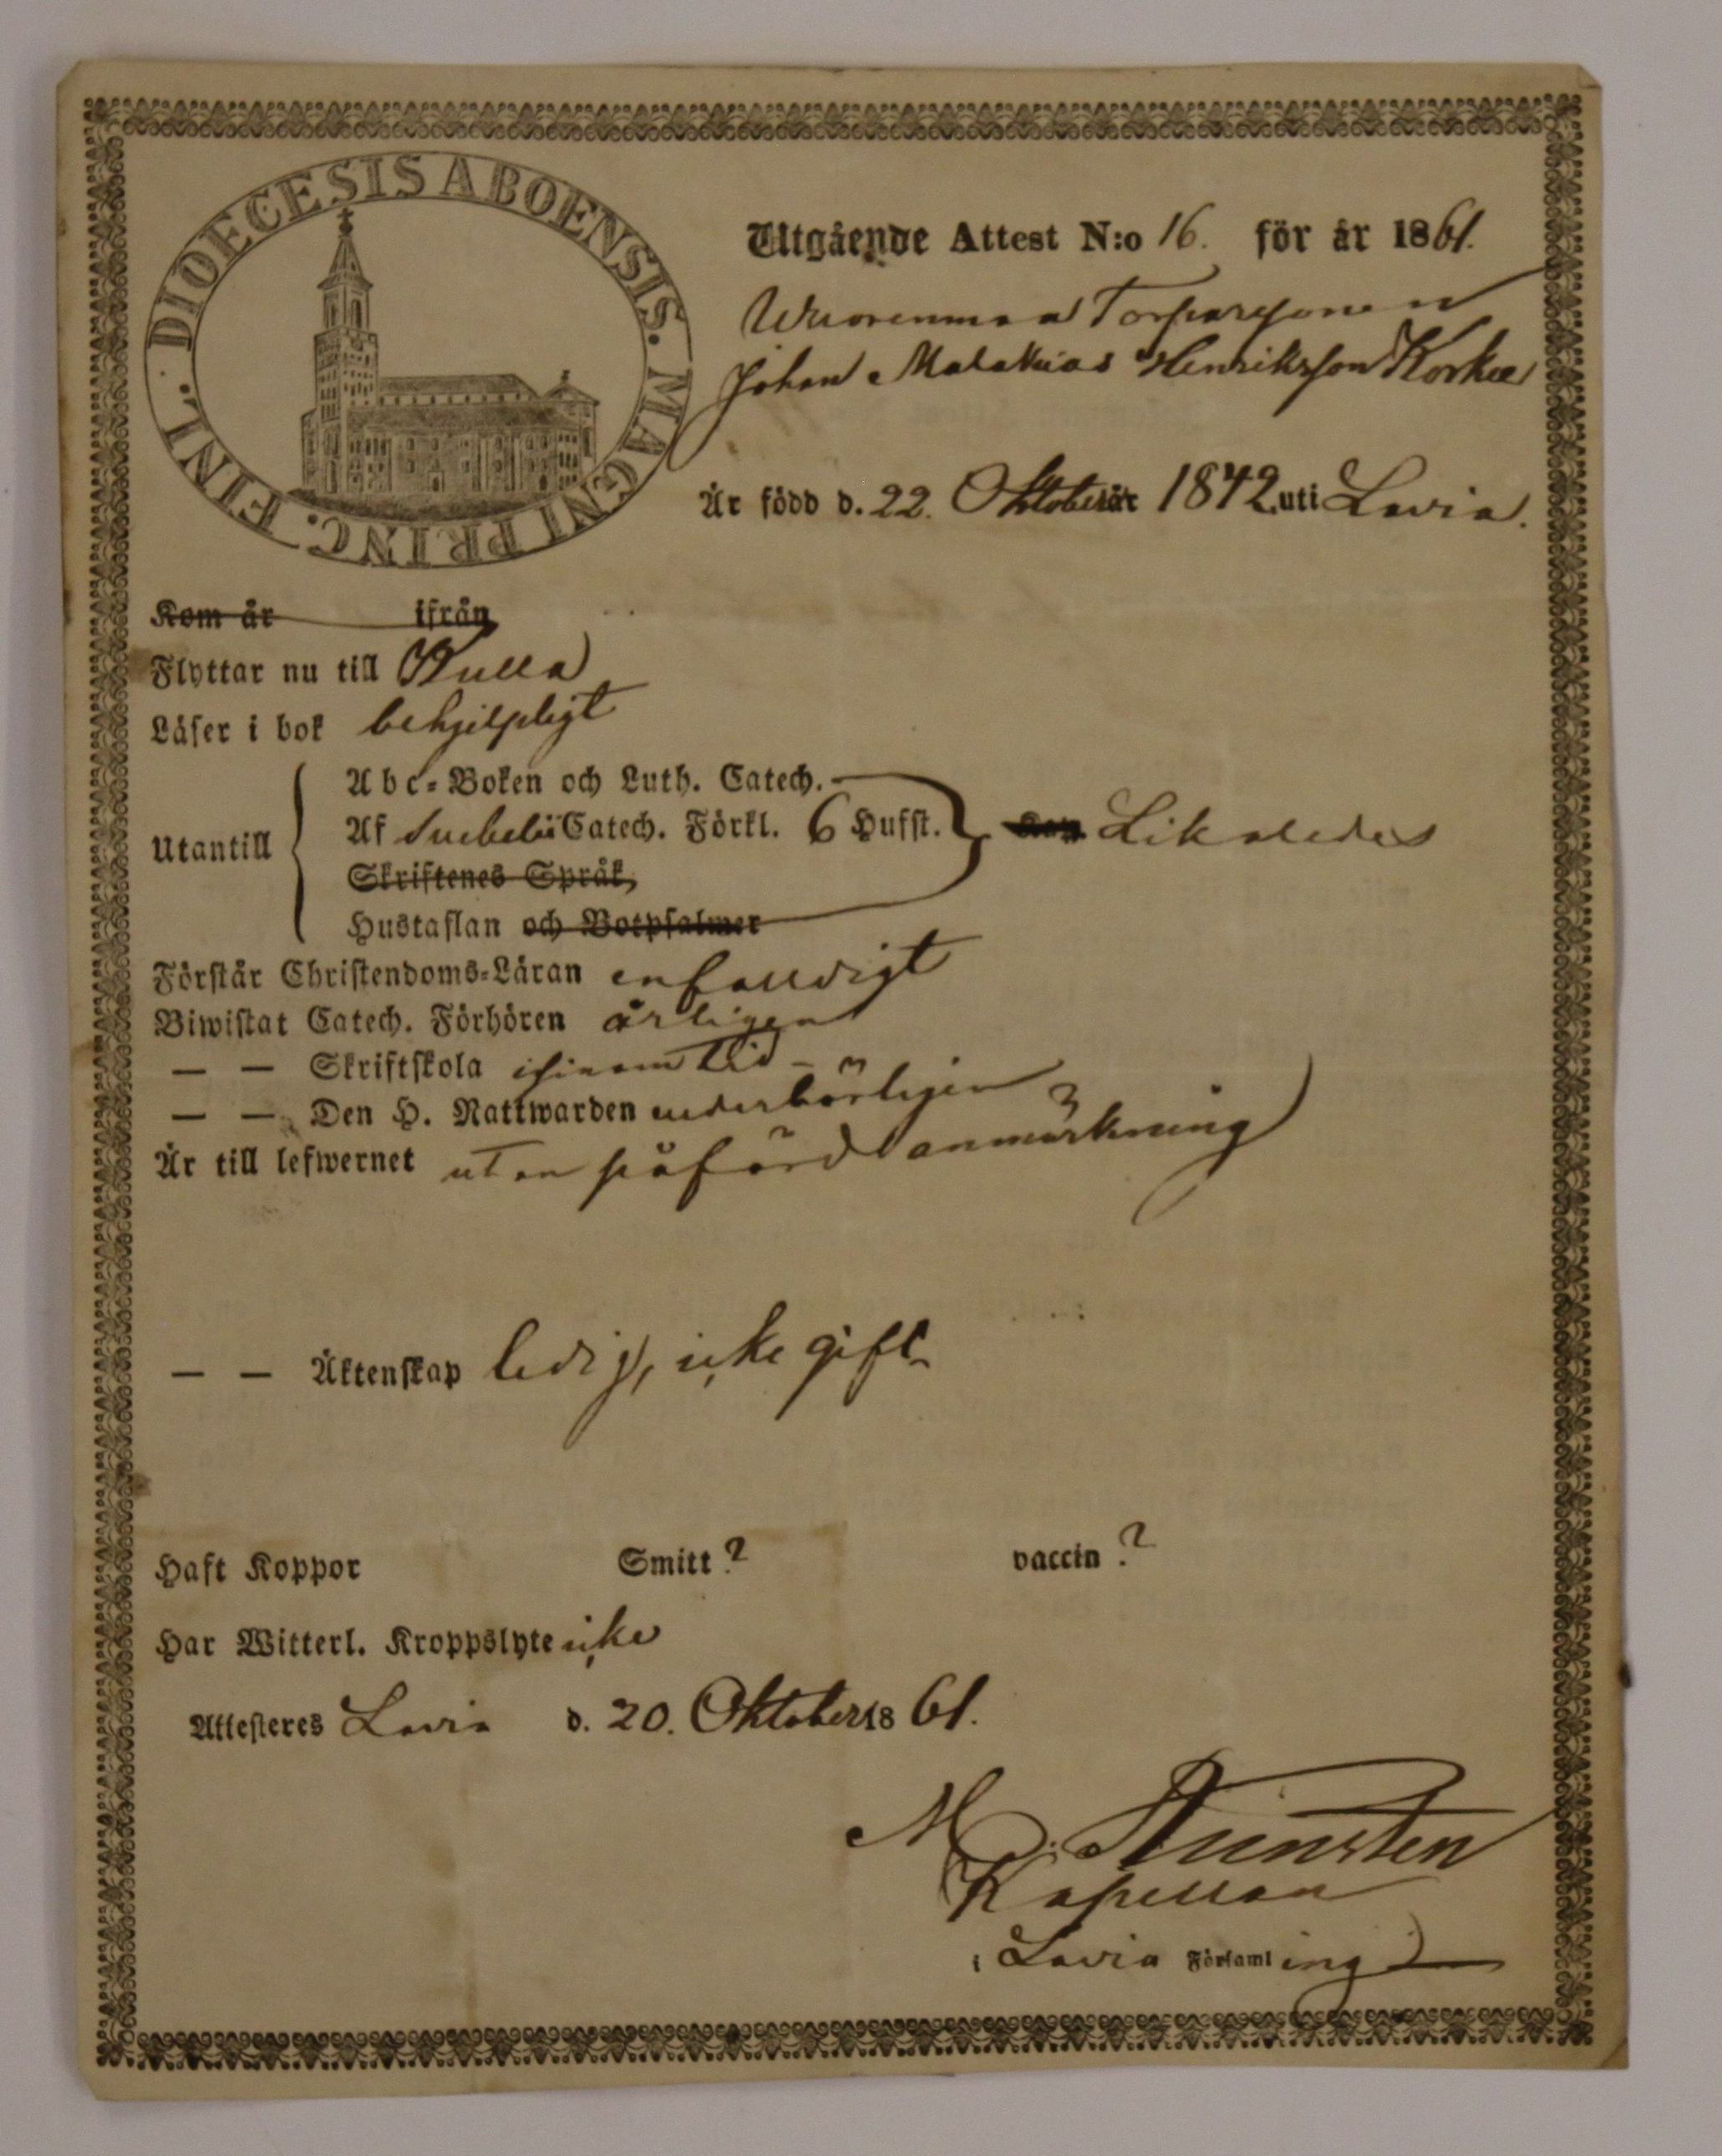 DIOECESIS ABOENSIS. MAGNI PRINC. FINL.
Utgående Attest N:o 16. för år 1861.
Wuorenmaa Torparsonen
Johan Malakias Henriksson Korkee
Är född d. 22. Oktober år 1842 uti Lavia.
Kom år ifrån
Flyttar nu till Kulla
Läser i bok behjelpligt
Utantill
Abc-Boken och Luth. Catech.
Af Svebelii Catech. Förkl. 6 Hufst. Likaledes
Skriftenes Språk,
Hustaflan och Botpsalmer
Förstår Christendoms-Läran enfalldigt
Biwistat Catech. Förhören årligen
— — Skriftskola i sinom tid
— — Den H. Nattwarden vederbörligen
Är till lefwernet utan påförd anmärkning
— — Äktenskap ledig, icke gift
Haft Koppor Smitt? vaccin?
Har Witterl. Kroppslyte icke
Attesteres Lavia d. 20. Oktober 1861.
M
Kapellan
i Lavia Församling